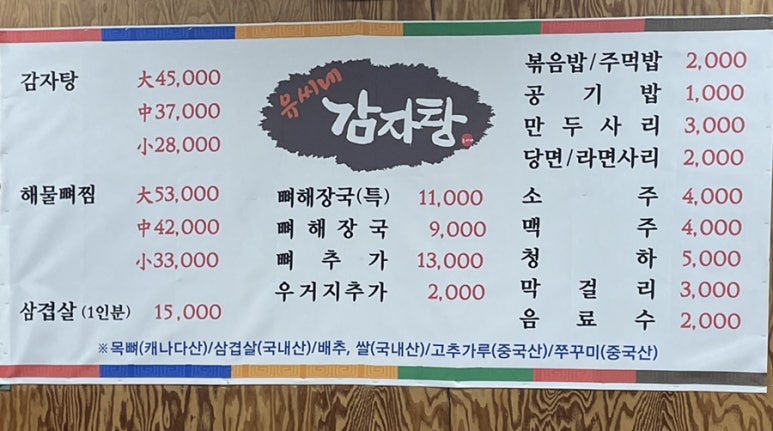 유씨네
감자탕
감자탕 大 45,000
中 37,000
小 28,000
해물뼈찜 大 53,000
中 42,000
小 33,000
삼겹살 (1인분) 15,000
뼈해장국(특) 11,000
뼈해장국 9,000
뼈추가 13,000
우거지추가 2,000
볶음밥/주먹밥 2,000
공기밥 1,000
만두사리 3,000
당면/라면사리 2,000
소주 4,000
맥주 4,000
청하 5,000
막걸리 3,000
음료수 2,000
※목뼈(캐나다산)/삼겹살(국내산)/배추, 쌀(국내산)/고추가루(중국산)/쭈꾸미(중국산)